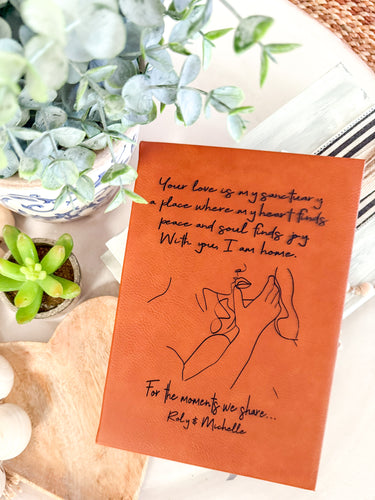 Your love is my sanctuary
a place where my heart finds
peace and soul finds joy
With you, I am home.
For the moments we share...
Roly & Michelle